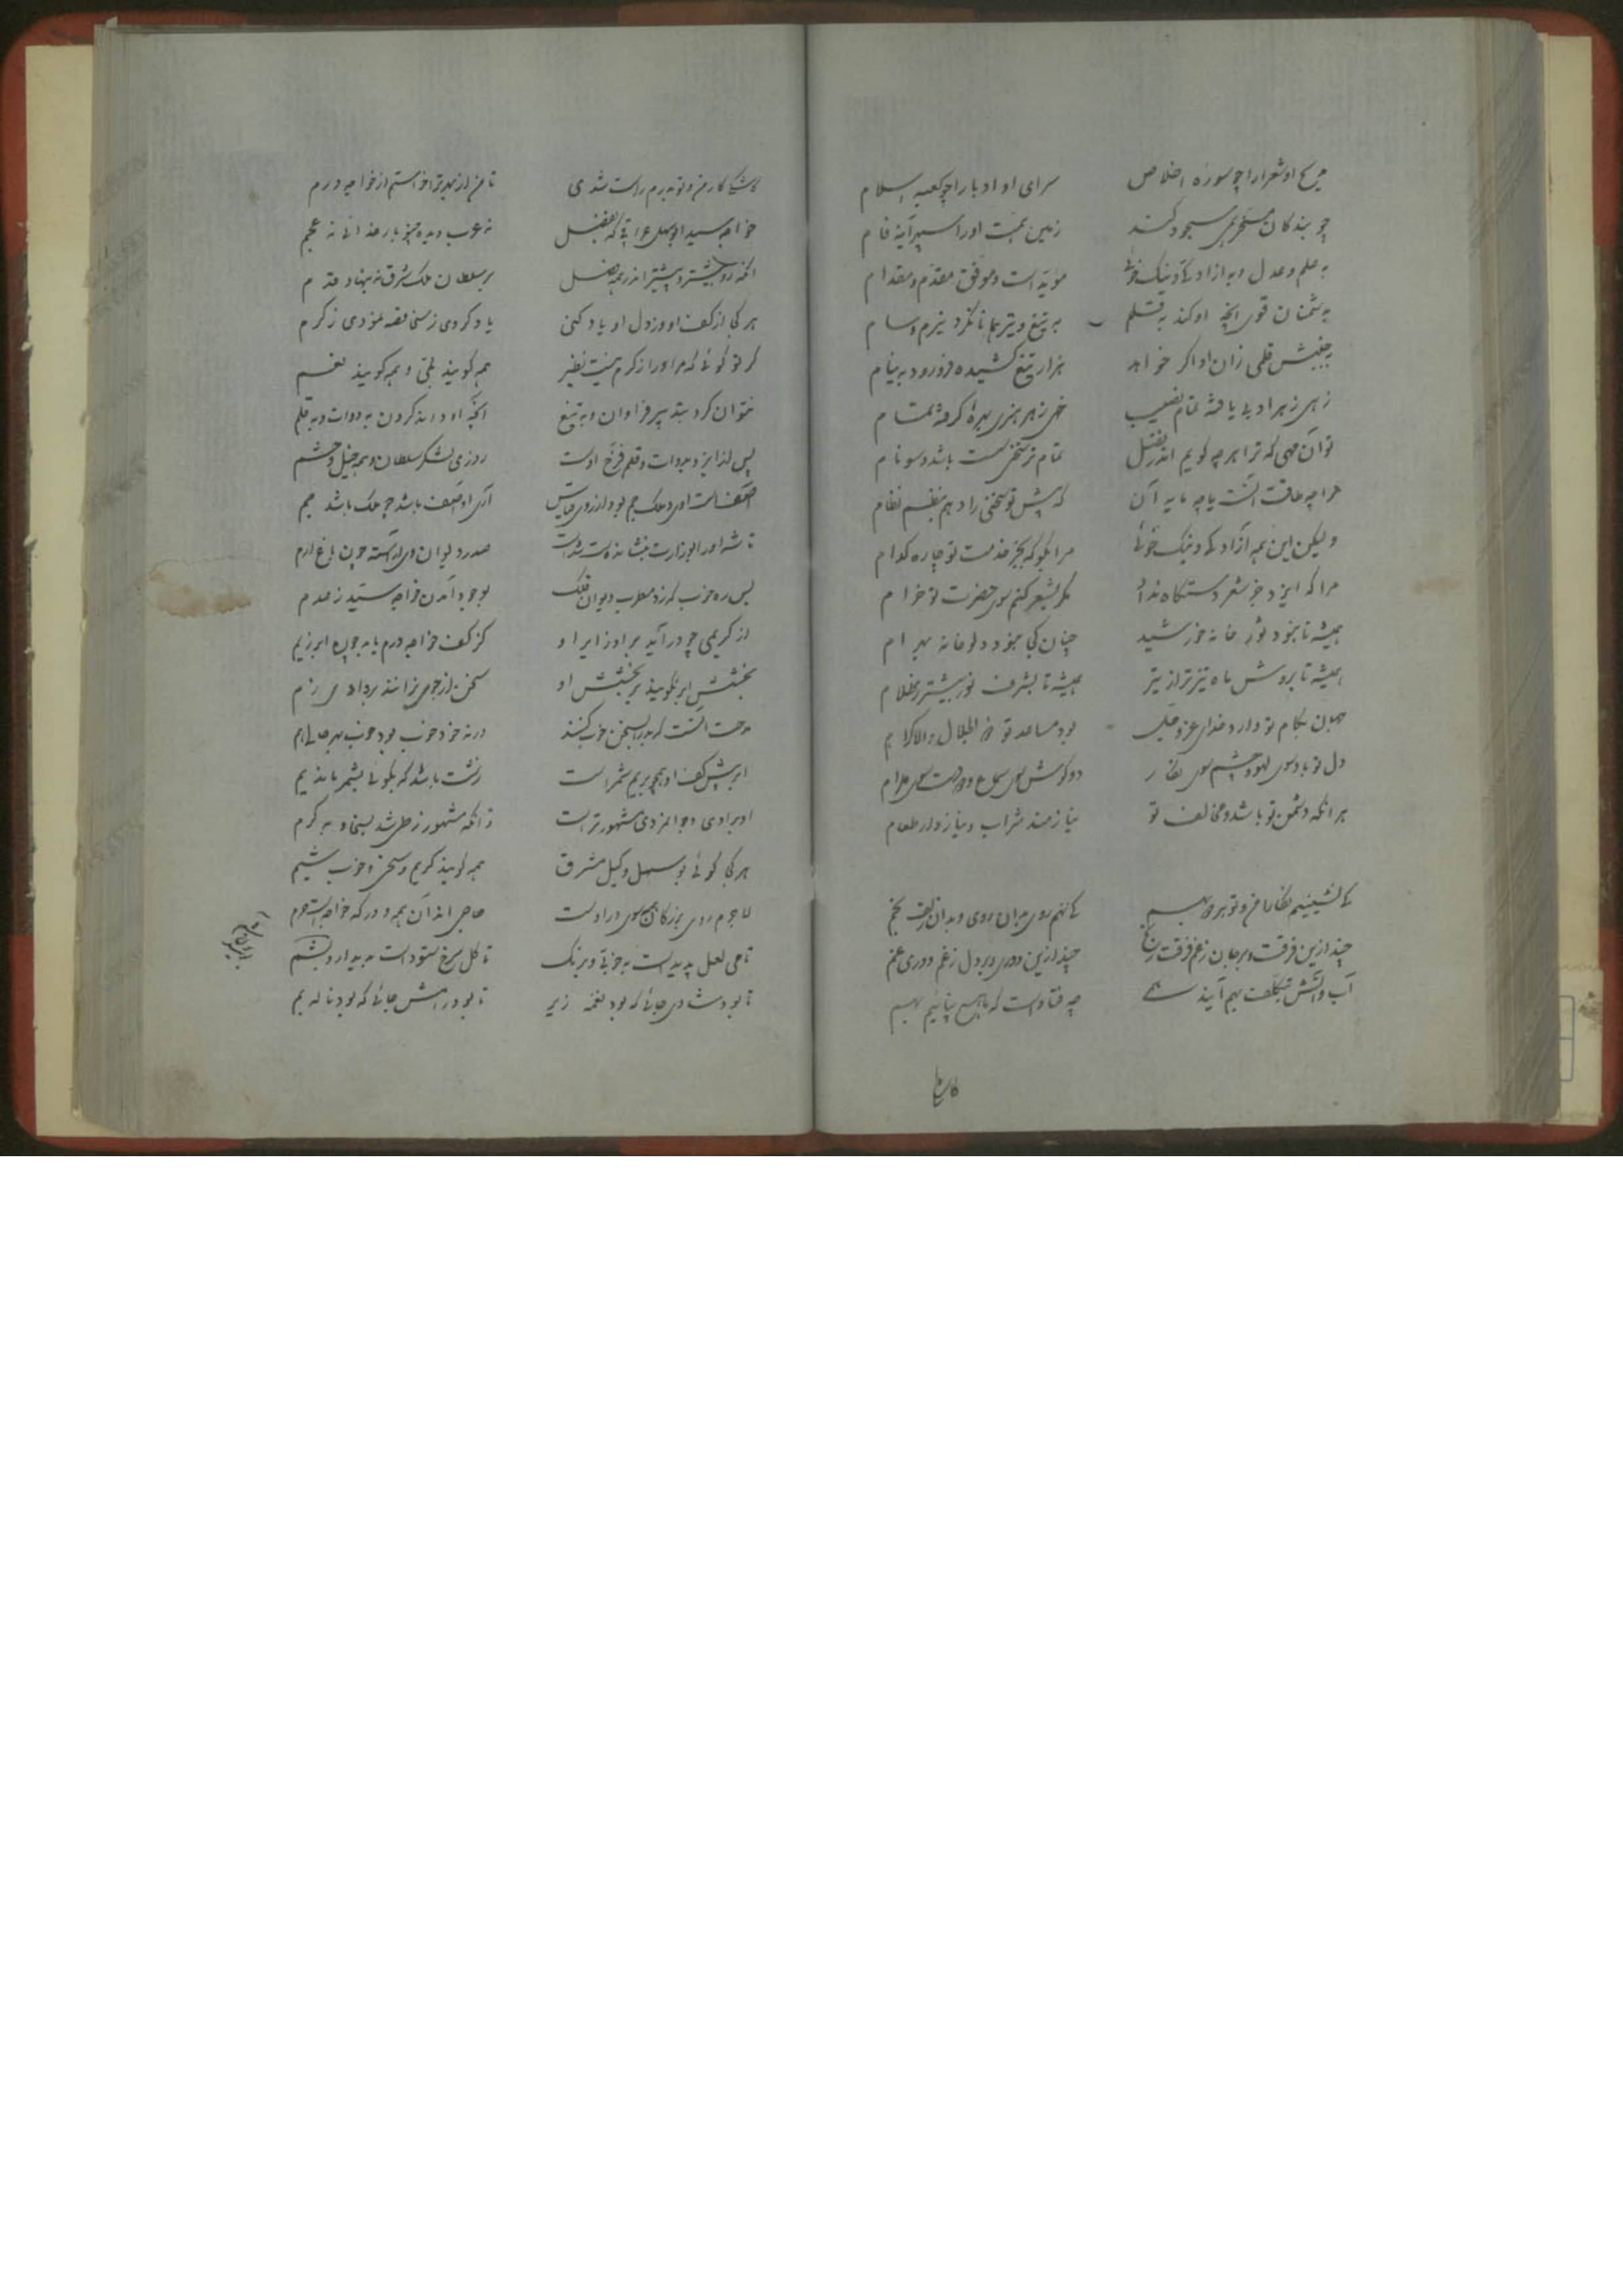 مدیح او شعرا را چو سورهٔ اخلاص سرای او ادبا را چو کعبهٔ اسلام
چو بندگان مسخر همی سجود کند زمین همت او را سپهر آینه فام
به علم و عدل و به آزادگی و نیک خوئی مؤید است و موفق مقدم و مقدام
به دشمنان قوی آنچه او کند به قلم به تیغ و تیر همانا نکرد نیرم و سام
به جنبش قلمی زان او اگر خواهد هزار تیغ کشیده فرو رود به نیام
زهی ز هر ادبی یافته تمام نصیب خهی ز هر هنری بهره گرفته تمام
تو آن مهی که ترا هر چه گویم اندر فضل تمام تر سخنی سست باشد و سوتام
مرا چه طاقت آنست یا چه مایه آن که پیش تو سخنی را دهم بنظم نظام
ولیکن این همه آزادگی و نیک خوئی مرا بگو که بجز خدمت تو چاره کدام
مرا که ایزد جز شعر دستگاه نداد مگر بشعر کنم سوی حضرت تو خرام
همیشه تا نبود ثور خانه خورشید چنان کجا نبود دلو خانه بهرام
همیشه تا بروش ماه تیزتر از تیر همیشه تا بشرف نور بیشتر ز ظلام
جهان بکام تو دارد خدای عز و جل بود مساعد تو ذو الجلال والاکرام
دل تو باد سوی لهو و چشم سوی نگار دو گوش سوی سماع و دو دست سوی مدام
هر آنکه دشمن تو باشد و مخالف تو نیازمند شراب و نیازدار طعام
کی نشینیم نگارا من و تو هر دو بهم کی نهم روی بدان روی و بدان زلف بخم
چند ازین فرقت و بر جان ز غم فرقت رنج چند ازین دوری و بر دل ز غم دوری غم
آب و آتش بتکلف بهم آیند همی چه فتاد است که ما هیچ نیائیم بهم
کاشکی
کاشکی کار من و تو بدرم راست شدی تا من از بهر ترا خواستم از خواجه درم
خواجه سید ابوسهل عراقی که بفضل نه عرب دیده چنو بار خدائی نه عجم
آنکه زو بیشتر و پیشتر اندر همه فضل بر سلطان ملک شرق نه بنهاد قدم
هر کجا از کف او وز دل او یاد کنی یاد کردی ز سخا قصه نمودی ز کرم
گر تو گوئی که مر او را ز کرم نیست نظیر همه گویند بلی و همه گویند نعم
نتوان کرد بتدبیر فراوان و به تیغ آنچه او داند کردن به دوات و به قلم
پس از ایزد به دوات و قلم فرخ اوست روزی لشکر سلطان و همه خیل و حشم
آصفست اوی و ملک جم بود از روی قیاس آری او آصف باشد چو ملک باشد جم
تا شه او را بوزارت بنشانده است شده است صدر دیوان وی آراسته چون باغ ارم
بس ره خوب که زد مطرب دیوان فلک بوجود آمدن خواجه سید ز عدم
از کریمی چو درآید بر او زایر او کز کف خواجه درم بارد چون ابر ز یم
بخشش ابر نگویند بر بخشش او سخن از جوی نرانند بر وادی زم
مدحت آنست که بدرا بسخن خوب کنند ورنه خود خوب بود خوب بهر جای اندر
ابر پیش کف او همچو بر یم شمر است زشت باشد که بگوئی بشمر ماند یم
او برادی و جوانمردی مشهورتر است زانکه مشهور ز طی شد بسخا و به کرم
هر کجا گوئی بوسهل وکیل مشرق همه گویند کریم و سخی و خوب شیم
لاجرم روی بزرگان همه سوی در اوست حاجی اند آن همه و درگه خواجه است حرم
تا می لعل پدید است به خوبی و برنگ تا گل سرخ ستوده است به دیدار و بشم
تا بود شادی جائی که بود نغمه زیر تا بود رامش جائی که بود ناله بم